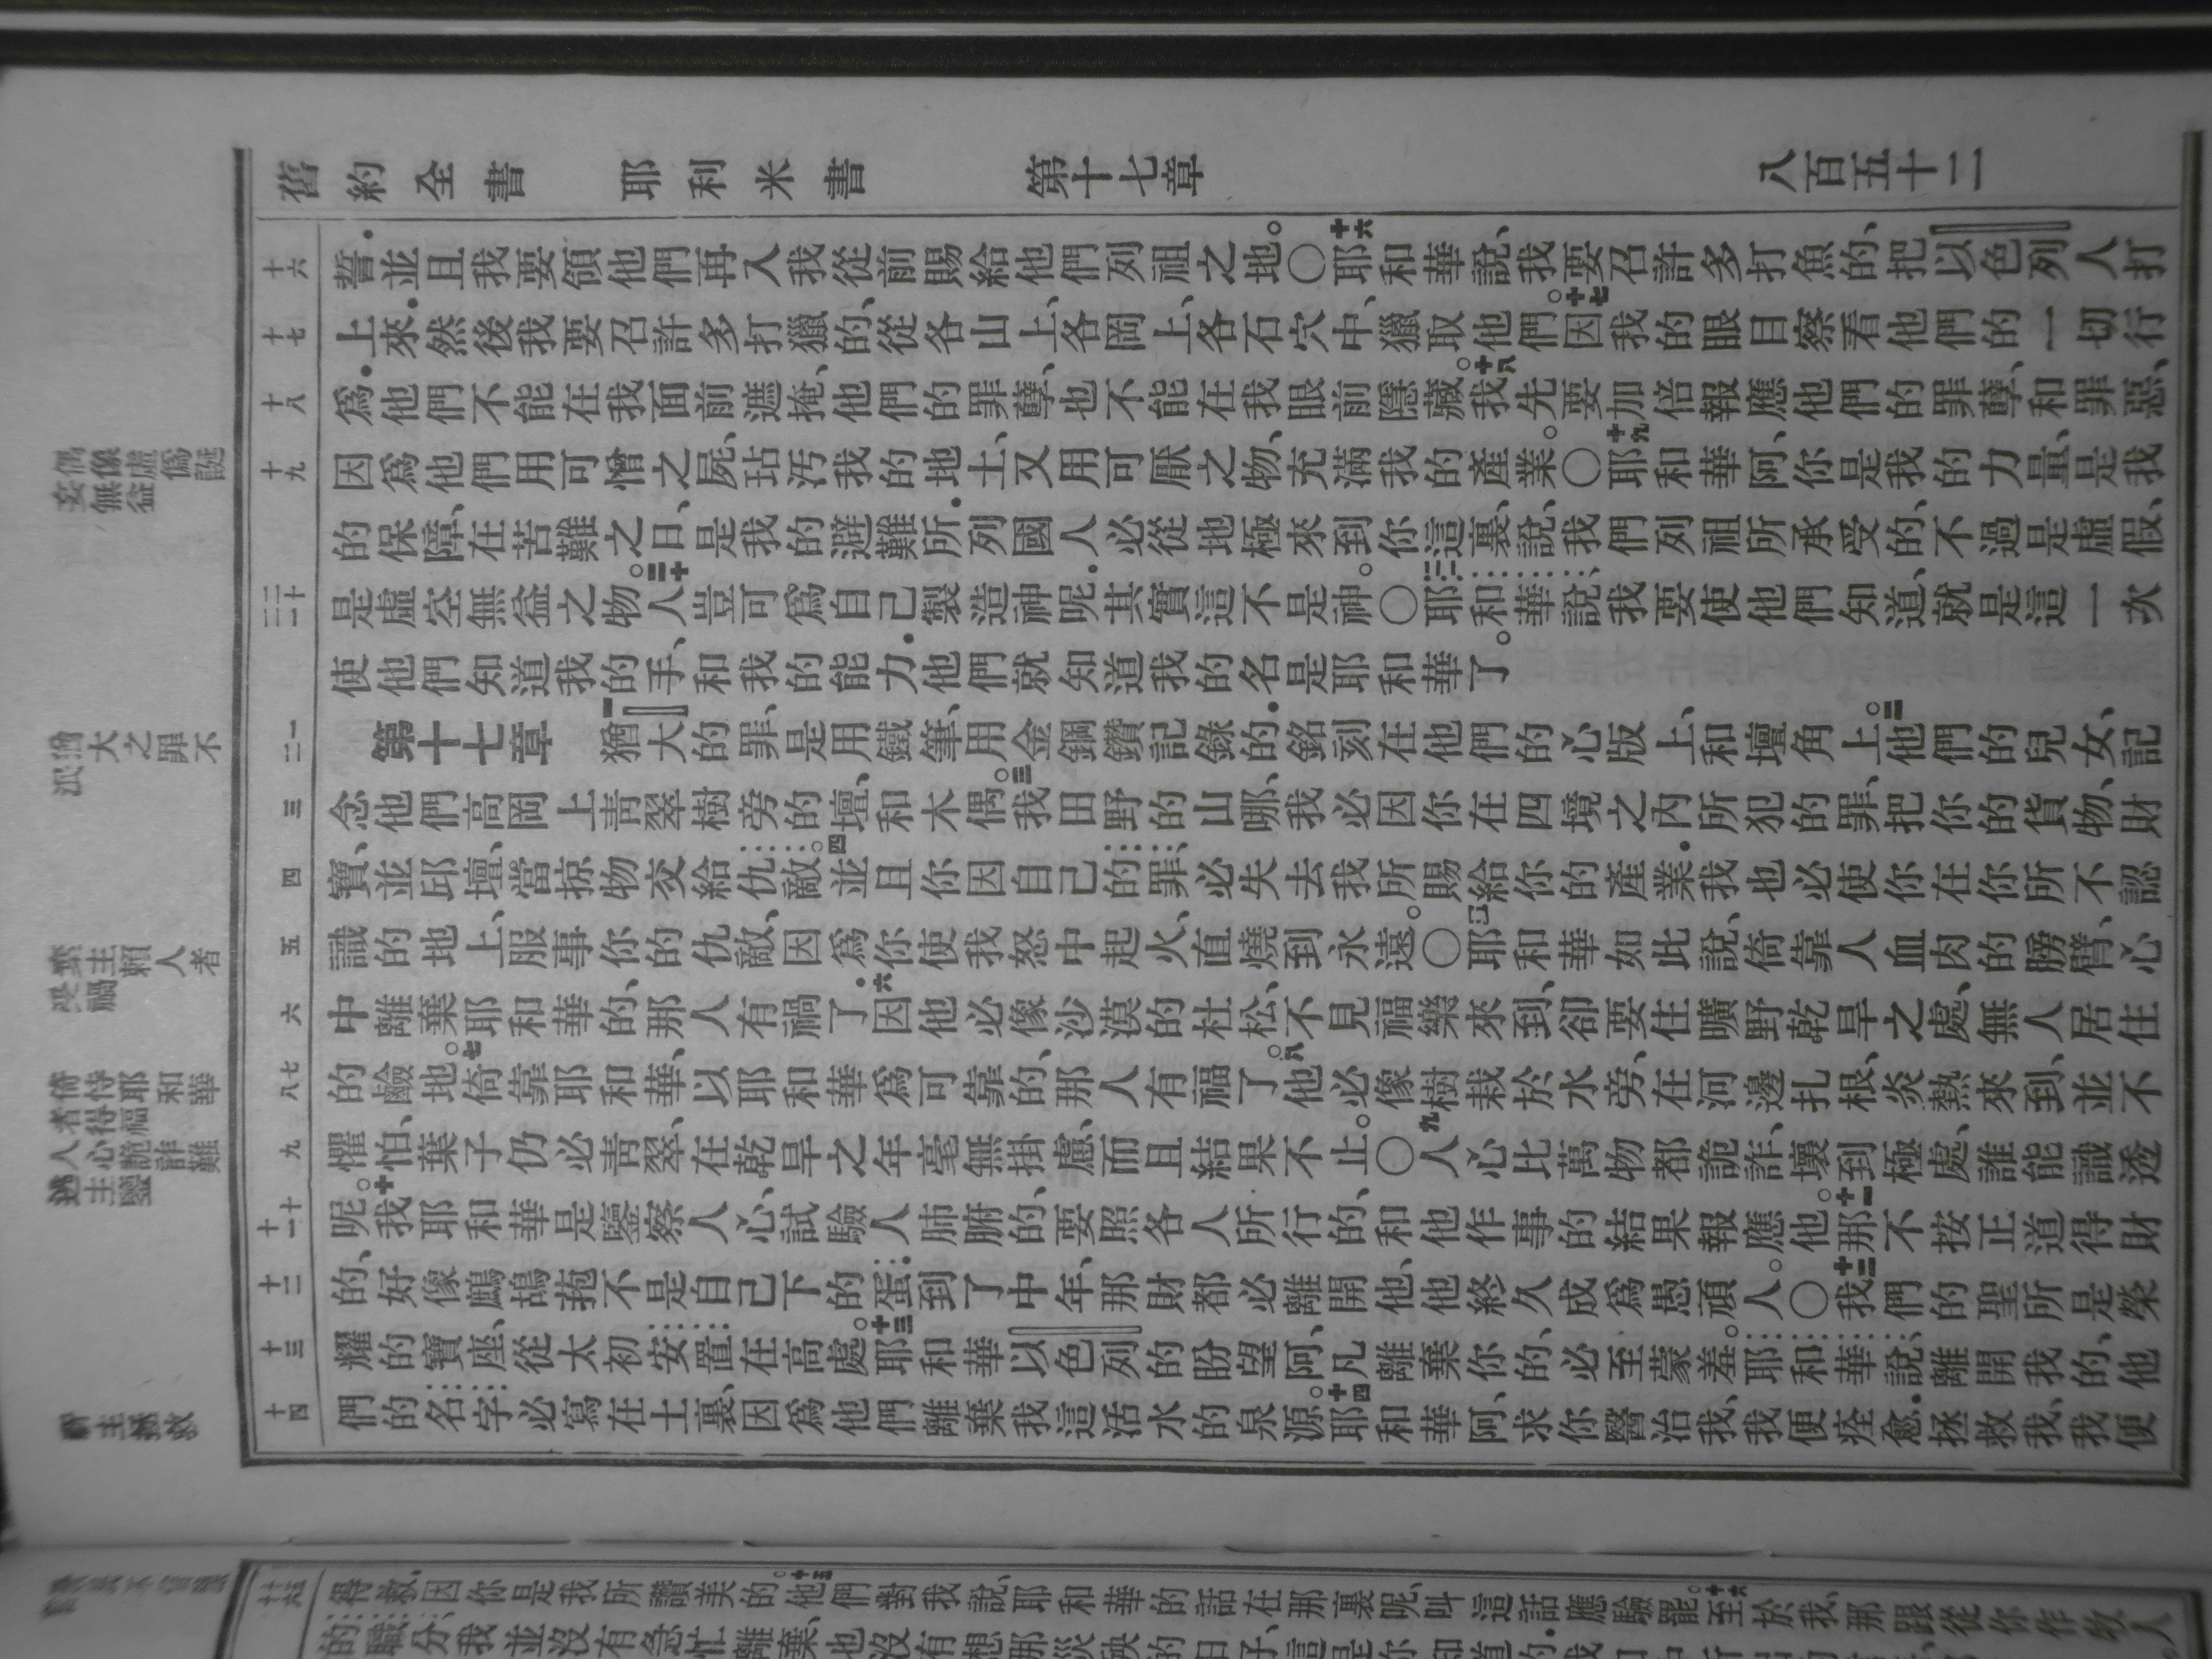 舊約全書 耶利米書 第十七章 八百五十二
十六 誓．並且我要領他們再入我從前賜給他們列祖之地。〇十六耶和華說、我要召許多打魚的、把以色列人打
十七 上來．然後我要召許多打獵的、從各山上、各岡上、各石穴中、獵取他們。十七因我的眼目察看他們的一切行
十八 爲．他們不能在我面前遮掩、他們的罪孽、也不能在我眼前隱藏。十八我先要加倍報應他們的罪孽、和罪惡、
十九 因爲他們用可憎之屍、玷污我的地土、又用可厭之物、充滿我的產業。〇十九耶和華阿、你是我的力量、是我
的保障、在苦難之日、是我的避難所．列國人必從地極來到你這裏、說、我們列祖所承受的、不過是虛假、
二十 二一 是虛空無益之物。二十人豈可爲自己製造神呢．其實這不是神。〇二一耶和華說、我要使他們知道、就是這一次
使他們知道我的手、和我的能力．他們就知道我的名是耶和華了。
一 二 第十七章 一猶大的罪、是用鐵筆、用金鋼鑽記錄的．銘刻在他們的心版上、和壇角上。二他們的兒女、記
三 念他們高岡上青翠樹旁的壇、和木偶。三我田野的山哪、我必因你在四境之內所犯的罪、把你的貨物、財
四 寶、並邱壇、當掠物交給仇敵。四並且你因自己的罪、必失去我所賜給你的產業．我也必使你在你所不認
五 識的地上、服事你的仇敵、因爲你使我怒中起火、直燒到永遠。〇五耶和華如此說、倚靠人血肉的膀臂、心
六 中離棄耶和華的、那人有禍了．六因他必像沙漠的杜松、不見福樂來到、卻要住曠野乾旱之處、無人居住
七 八 的鹼地。七倚靠耶和華、以耶和華爲可靠的、那人有福了。八他必像樹栽於水旁、在河邊扎根、炎熱來到、並不
九 懼怕、葉子仍必青翠、在乾旱之年毫無掛慮、而且結果不止。〇九人心比萬物都詭詐、壞到極處、誰能識透
十 十一 呢。十我耶和華是鑒察人心、試驗人肺腑的、要照各人所行的、和他作事的結果報應他。十一那不按正道得財
十二 的、好像鷓鴣抱不是自己下的蛋．到了中年、那財都必離開他、他終久成爲愚頑人。〇十二我們的聖所是榮
十三 耀的寶座、從太初安置在高處。十三耶和華以色列的盼望阿、凡離棄你的、必至蒙羞。耶和華說、離開我的、他
十四 們的名字、必寫在土裏、因爲他們離棄我這活水的泉源。十四耶和華阿、求你醫治我、我便痊愈．拯救我、我便
猶大之罪不
泯
離主賴人者
受禍
倚恃耶和華
者得福
人心詭詐難
十五 十六 得救．因你是我所讚美的。十五他們對我說、耶和華的話在那裏呢、叫這話應驗罷。十六至於我、那跟從你作牧人
的職分、我並沒有急忙離棄、也沒有想那災殃的日子、這是你知道的．